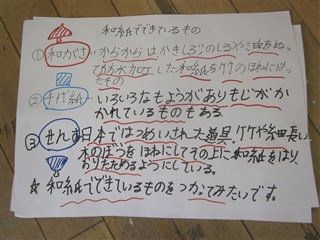 和紙でできているもの
①和がさ からからはかきしぶのしるや油をぬ
った加工した和紙を竹のほねにはっ
たもの
②千代紙 いろいろなもようがありもじがか
かれているものもある。
③せんす 日本ではつめいされた道具。竹や細長い
木のぼうをほねにしてその上に和紙をはり、
おりたためるようにしている。
☆和紙でできているものをつかってみたいです。